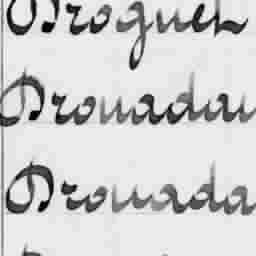 Droguet
Drouadau
Drouada